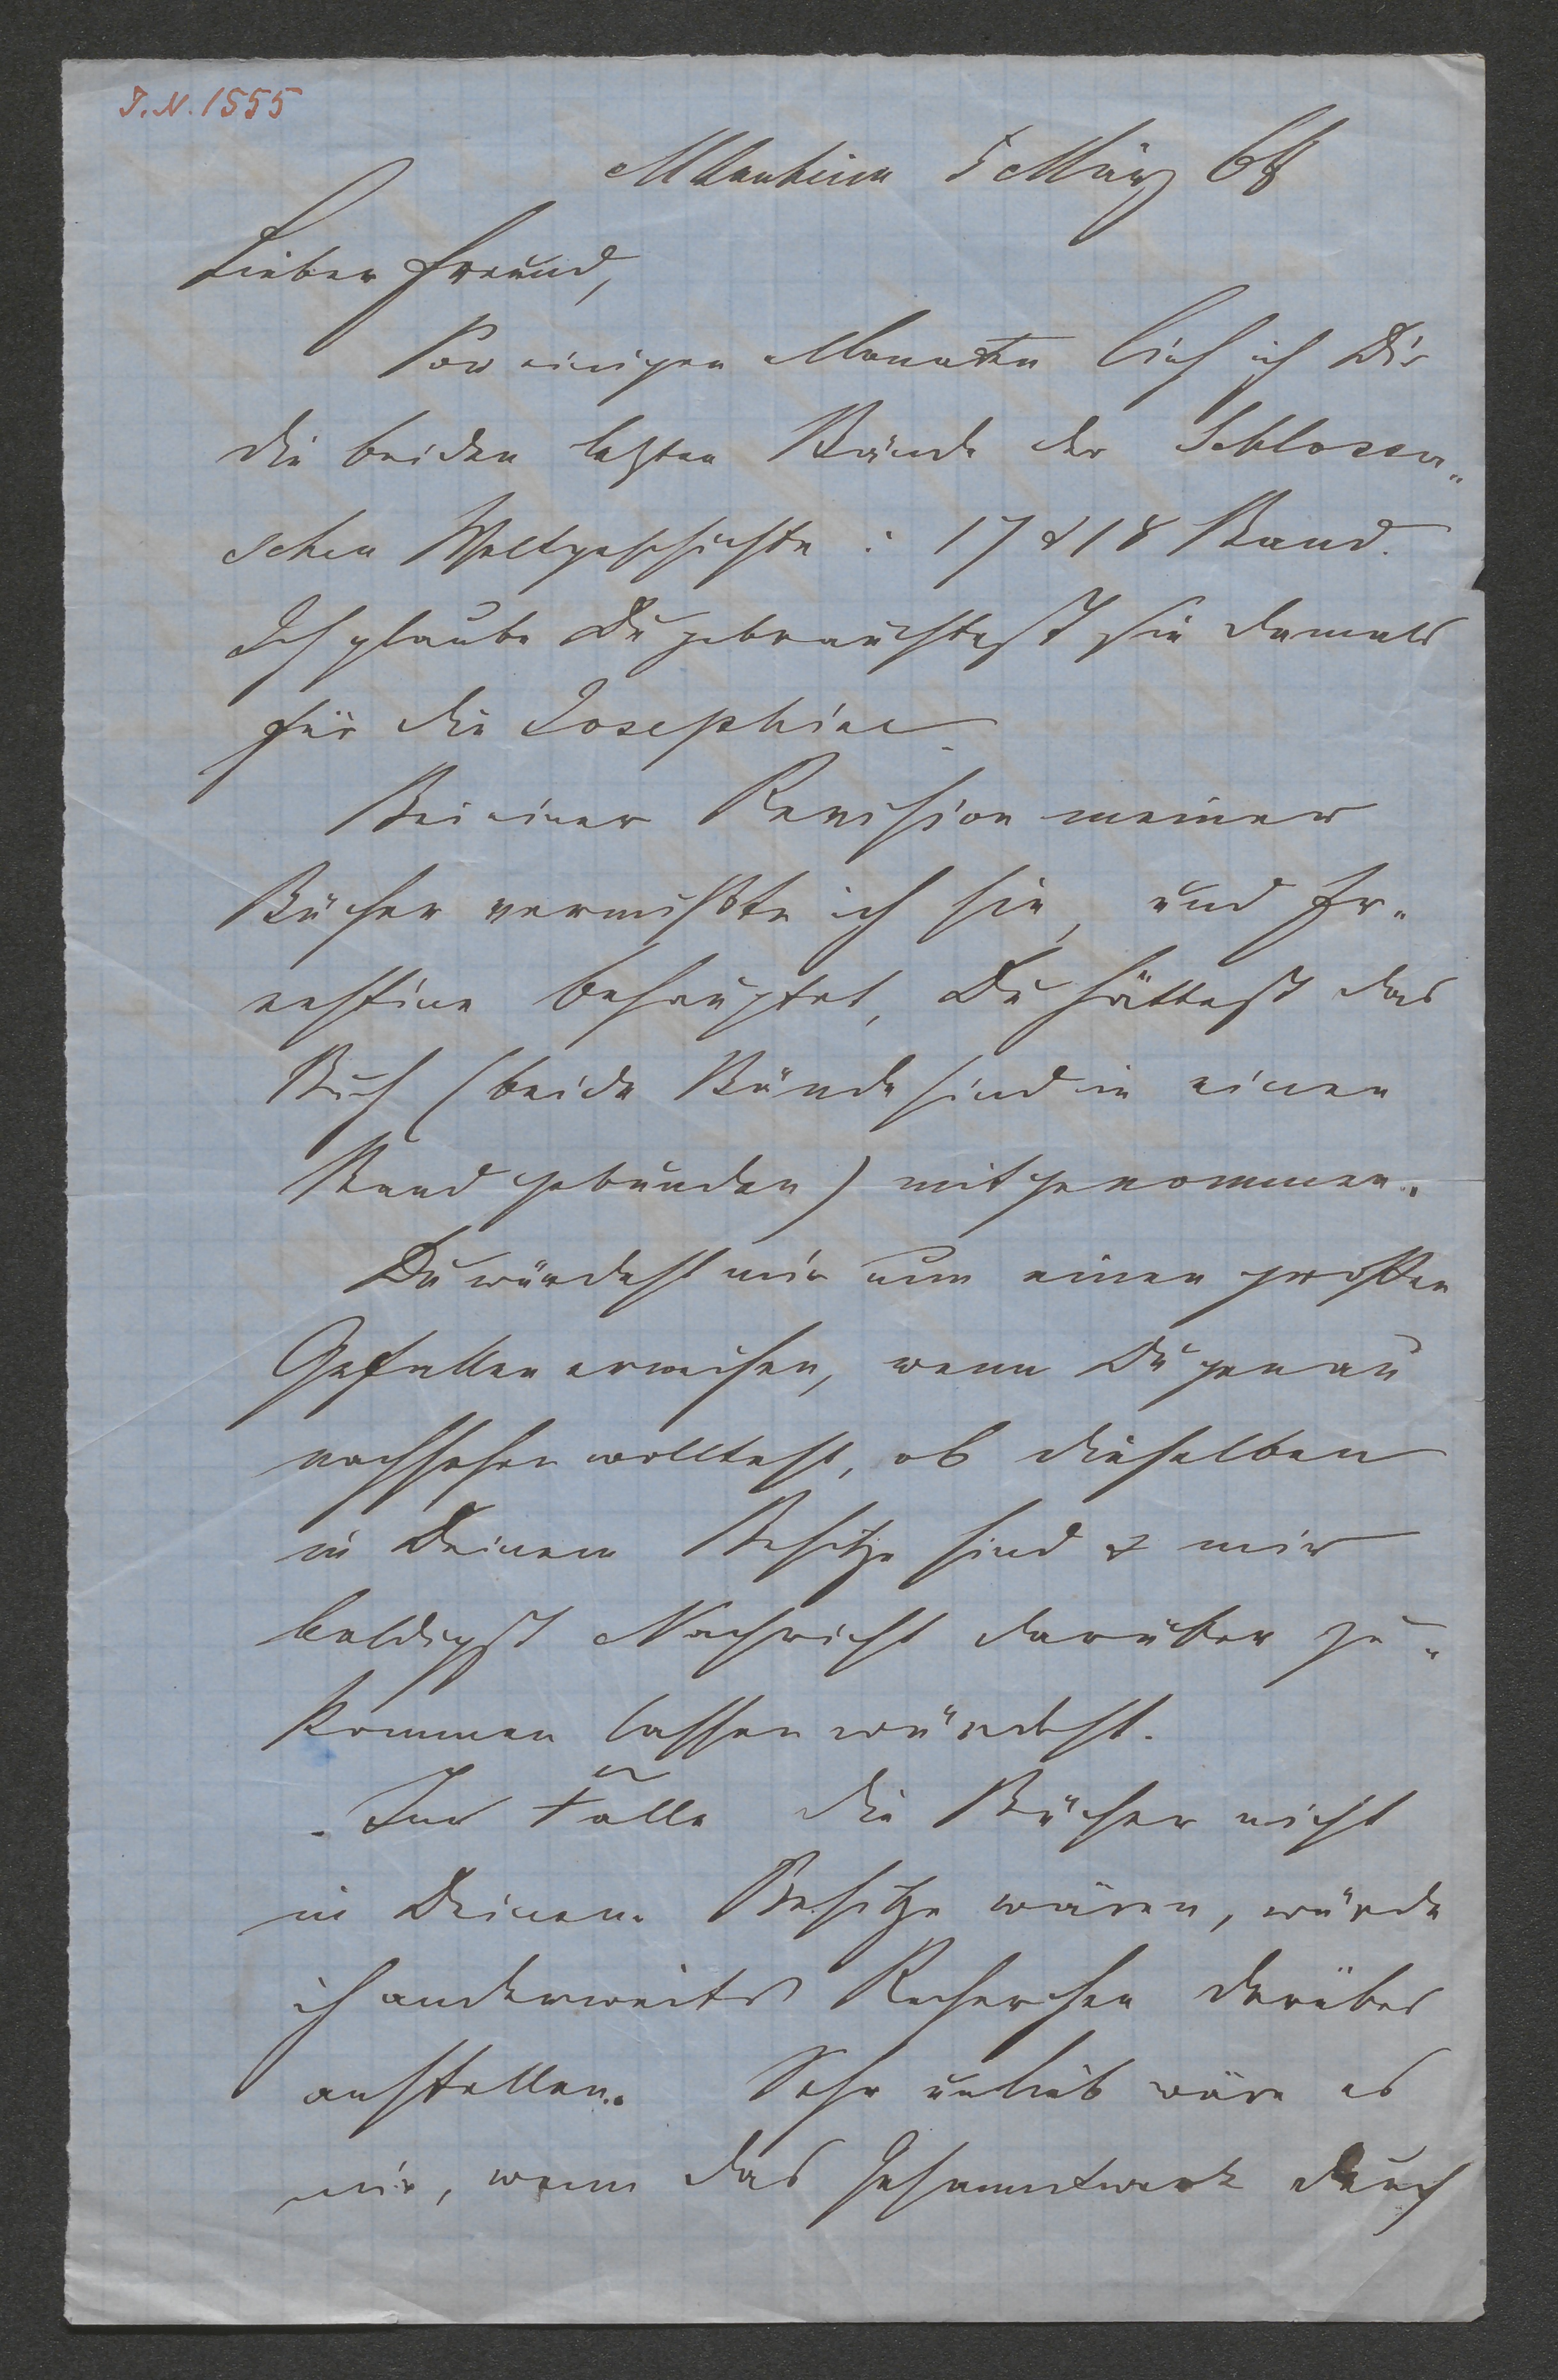 J. N. 1555
Mannheim 5 März 68
Lieber Freund,
Vor einigen Monaten lieh ich Dir
die beiden letzten Bände der Schlosser„
schen Weltgeschichte : 17 & 18 Band.
Ich glaube Du gebrauchtest sie damals
für die Josephine.
Bei einer Revision meiner
Bücher vermißte ich sie, und Er„
nestine behauptet, Du hättest das
Buch (beide Bände sind in einen
Band gebunden) mitgenommen.
Du würdest mir nun einen großen
Gefallen erweisen, wenn Du genau
nachsehen wolltest, ob dieselben
in Deinem Besitze sind & mir
baldigst Nachricht darüber zu„
kommen lassen würdest.
Im Falle die Bücher nicht
in Deinem Besitze wären, würde
ich anderweits Recherchen darüber
anstellen. Sehr unlieb wäre es
mir, wenn das Gesammtwerk durch